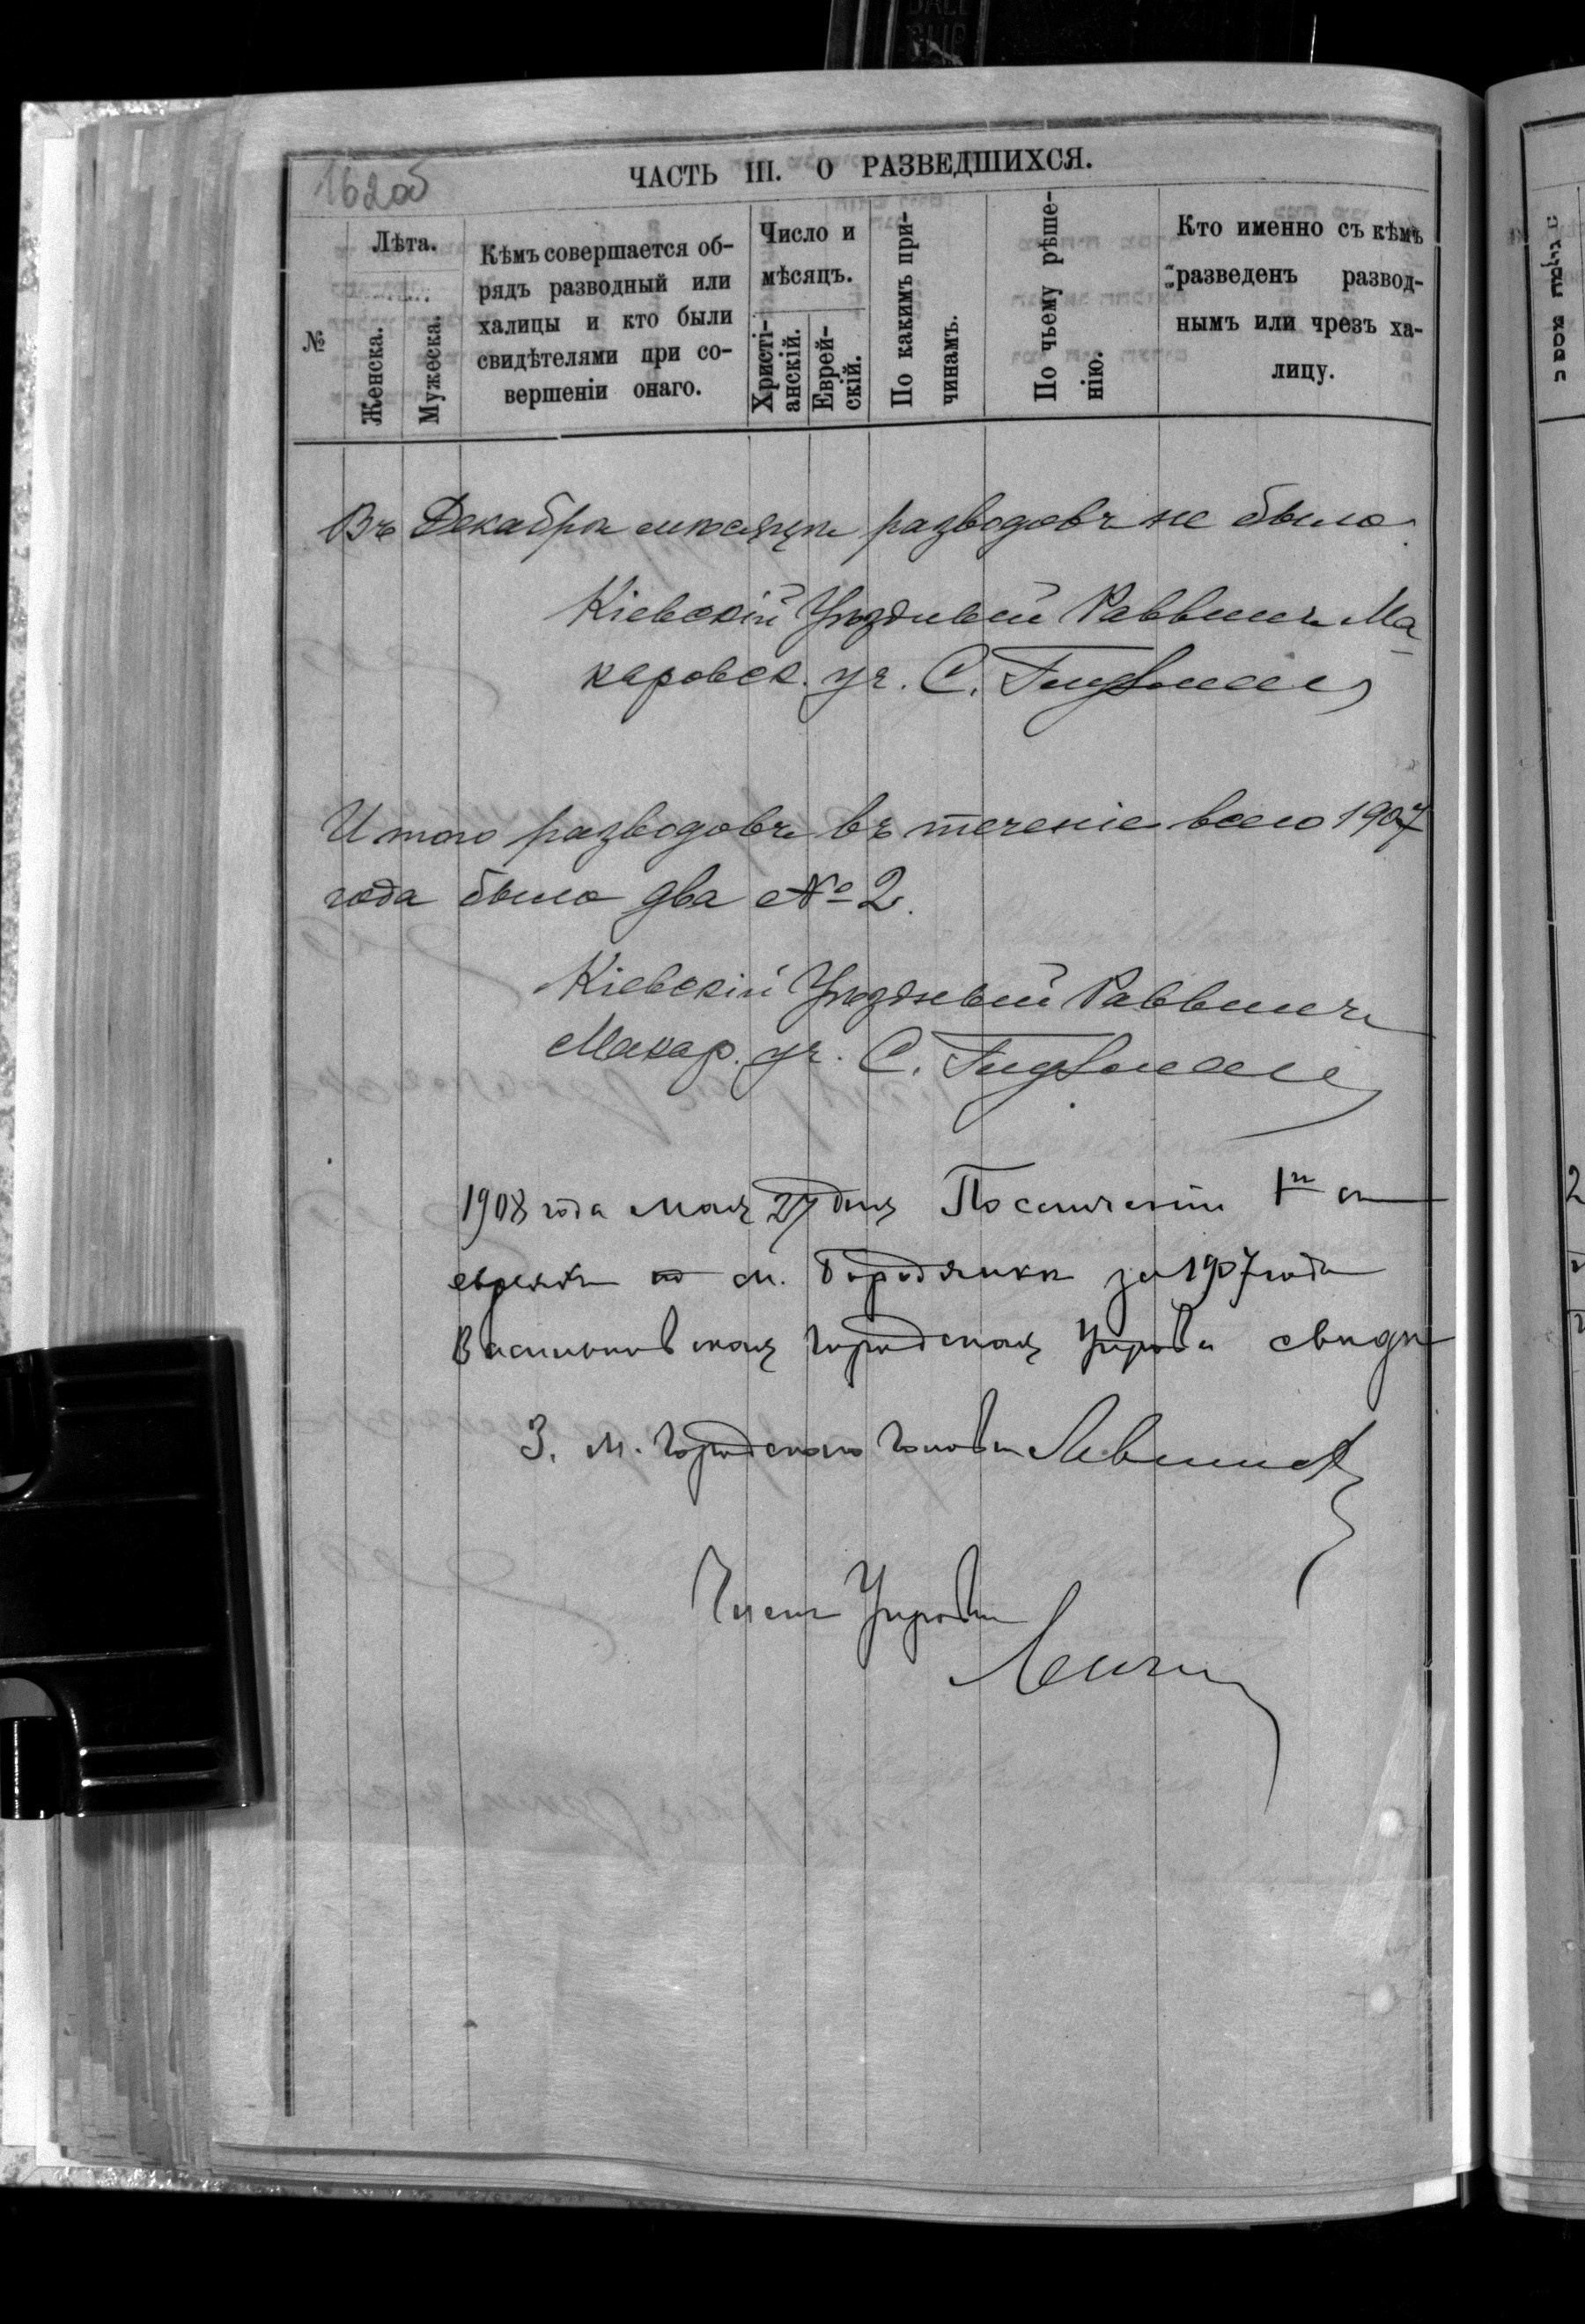 162об
ЧАСТЬ III. О РАЗВЕДШИХСЯ.
№
Лѣта.
Женска.
Мужеска.
Кѣмъ совершается об-
рядъ разводный или
халицы и кто были
свидѣтелями при со-
вершеніи онаго.
Число и
мѣсяцъ.
Христі-
анскій.
Еврей-
скій.
По какимъ при-
чинамъ.
По чьему рѣше-
нію.
Кто именно съ кѣмъ
разведенъ развод-
нымъ или чрезъ ха-
лицу.
Въ Декабрѣ мѣсяцѣ разводовъ не было.
Кіевскій Уѣздный Раввинъ Ма-
каровск. уч. С.
Итого разводовъ въ теченіе всего 1907
года было два № 2.
Кіевскій Уѣздный Раввинъ
Макар. уч. С.
1908 года мая 27 дня По
евреях м. Бородянки за 1907 года
Васильковская Городская Управа свидѣ
З. м. Городского Головы
Членъ Управы